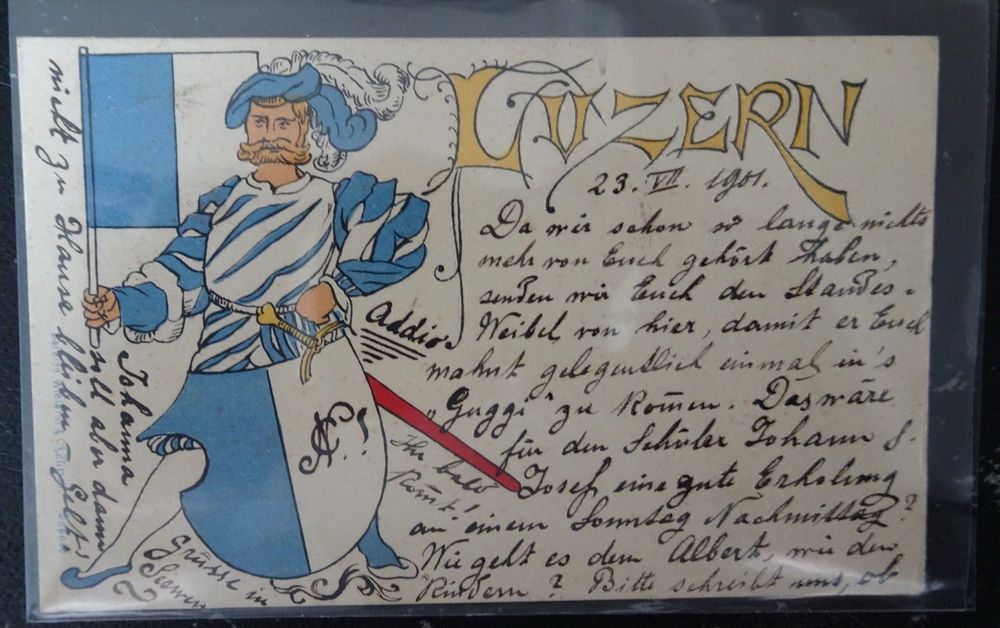 LUZERN
23. VII. 1901.
Da wir schon so lange nichts
mehr von Euch gehört haben,
senden wir Euch den Standes-
Weibel von hier, damit er Euch
mahnt gelegentlich einmal in's
"Guggi" zu kom̄en. Das wäre
für den Schüler Johann &
Josef eine gute Erholung
an einem Sonntag Nachmittag?
Wie geht es dem Albert, wie den
Kindern? Bitte schreibt uns, ob
Ihr bald
kom̄t!
Addio
Johanna
soll aber dann
nicht zu Hause bleiben, Gelt!
Grüsse in
Seewen